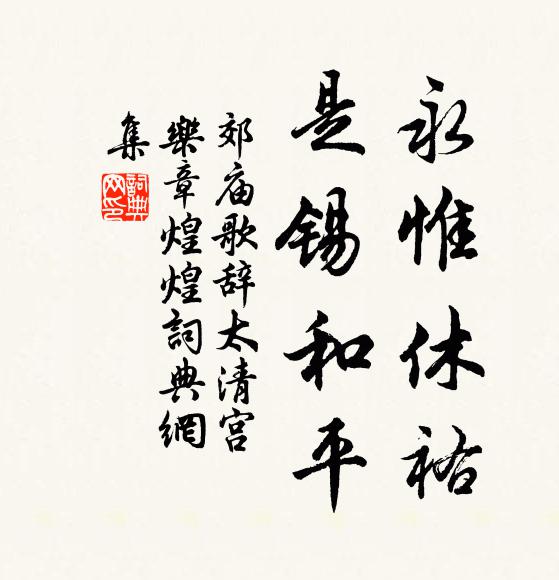 永惟休祐
是锡和平
郊庙歌辞太清宫
樂章煌煌詞典網
集
詞典網印